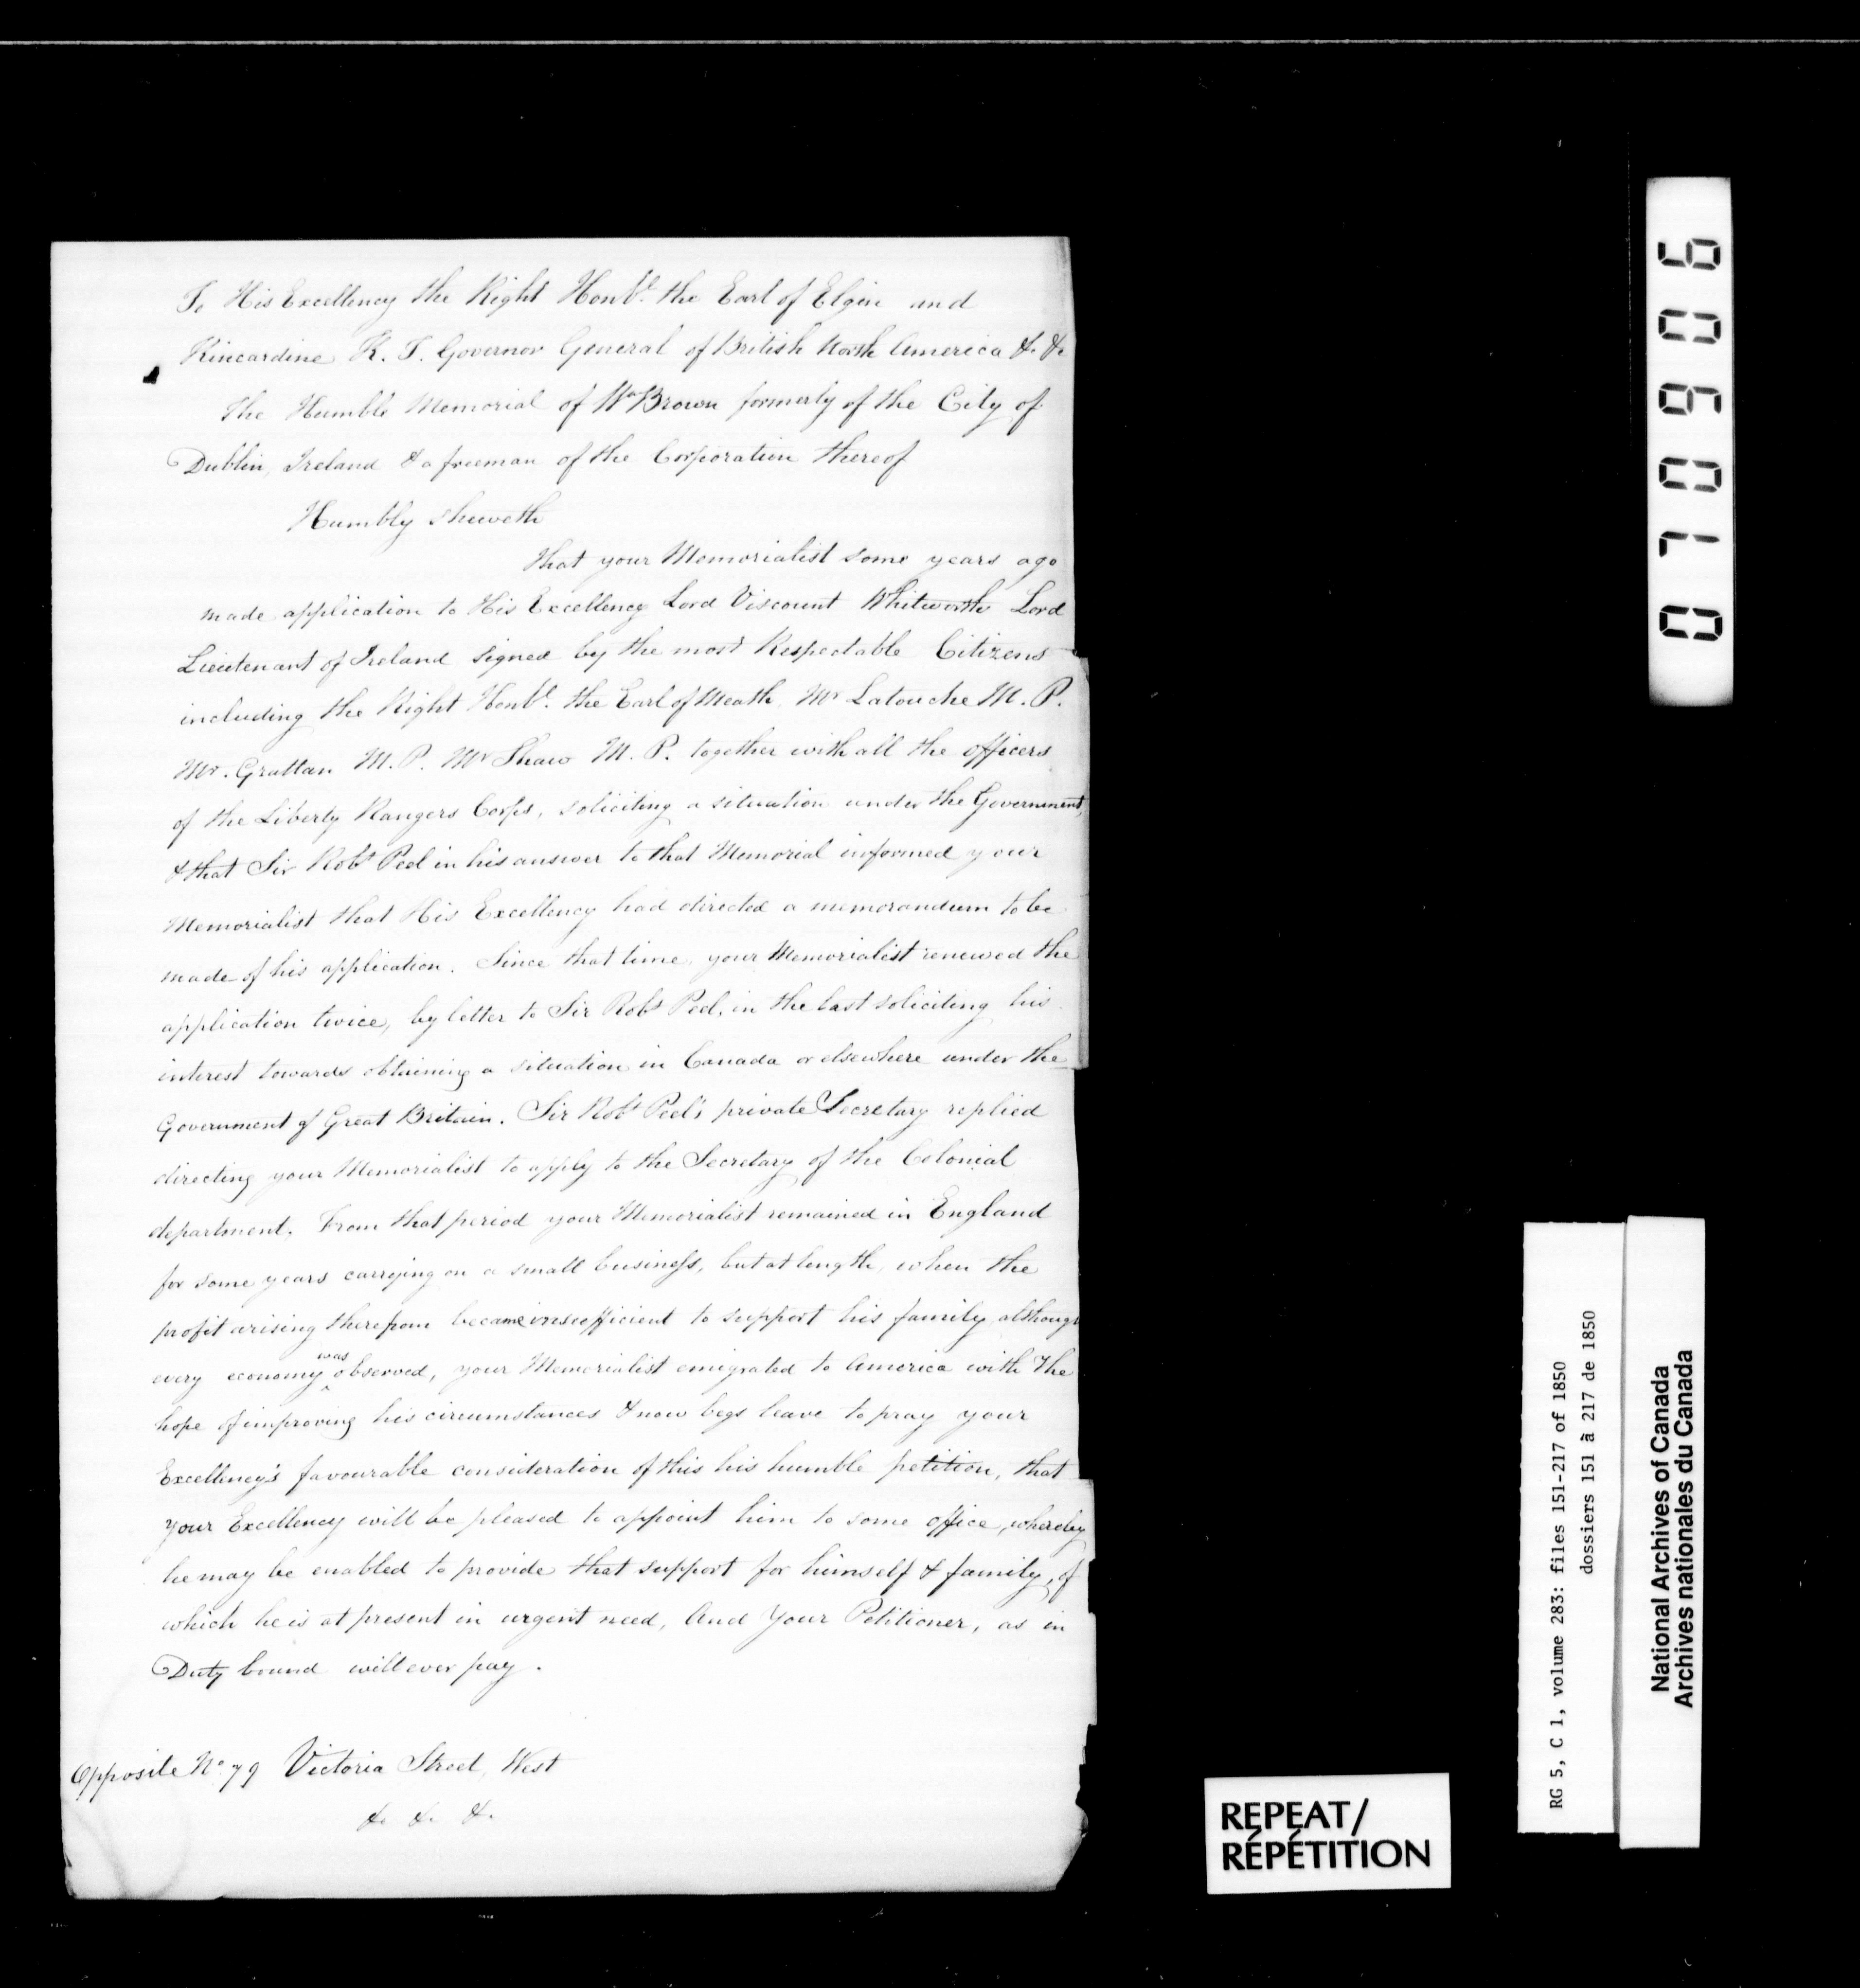 To His Excellency the Right Honbl. the Earl of Elgin and
Kincardine K. T. Governor General of British North America &. &.
The Humble Memorial of Wm Brown formerly of the City of
Dublin, Ireland & a freeman of the Corporation thereof
Humbly sheweth
that your Memorialist some years ago
made application to His Excellency Lord Viscount Whitworth Lord
Lieutenant of Ireland signed by the most Respectable Citizens
including the Right Honbl. the Earl of Meath, Mr Latouche M. P.
Mr. Grattan M. P. Mr Shaw M. P. together with all the officers
of the Liberty Rangers Corps, soliciting a situation under the Government,
& that Sir Robt Peel in his answer to that Memorial informed your
Memorialist that His Excellency had directed a memorandum to be
made of his application. Since that time, your Memorialist renewed the
application twice, by letter to Sir Robt Peel, in the last soliciting his
interest towards obtaining a situation in Canada or elsewhere under the
Government of Great Britain. Sir Robt Peel's private Secretary replied
directing your Memorialist to apply to the Secretary of the Colonial
department. From that period your Memorialist remained in England
for some years carrying on a small business, but at length, when the
profit arising therefrom became insufficient to support his family, although
every economy was observed, your Memorialist emigrated to America with the
hope of improving his circumstances & now begs leave to pray your
Excellency's favourable consideration of this his humble petition, that
your Excellency will be pleased to appoint him to some office, whereby
he may be enabled to provide that support for himself & family, of
which he is at present in urgent need, And Your Petitioner, as in
Duty bound will ever pay.
Opposite No. 79 Victoria Street, West
&. &. &.
070906
RG 5, C 1, volume 283: files 151-217 of 1850
dossiers 151 à 217 de 1850
National Archives of Canada
Archives nationales du Canada
REPEAT/
RÉPÉTITION